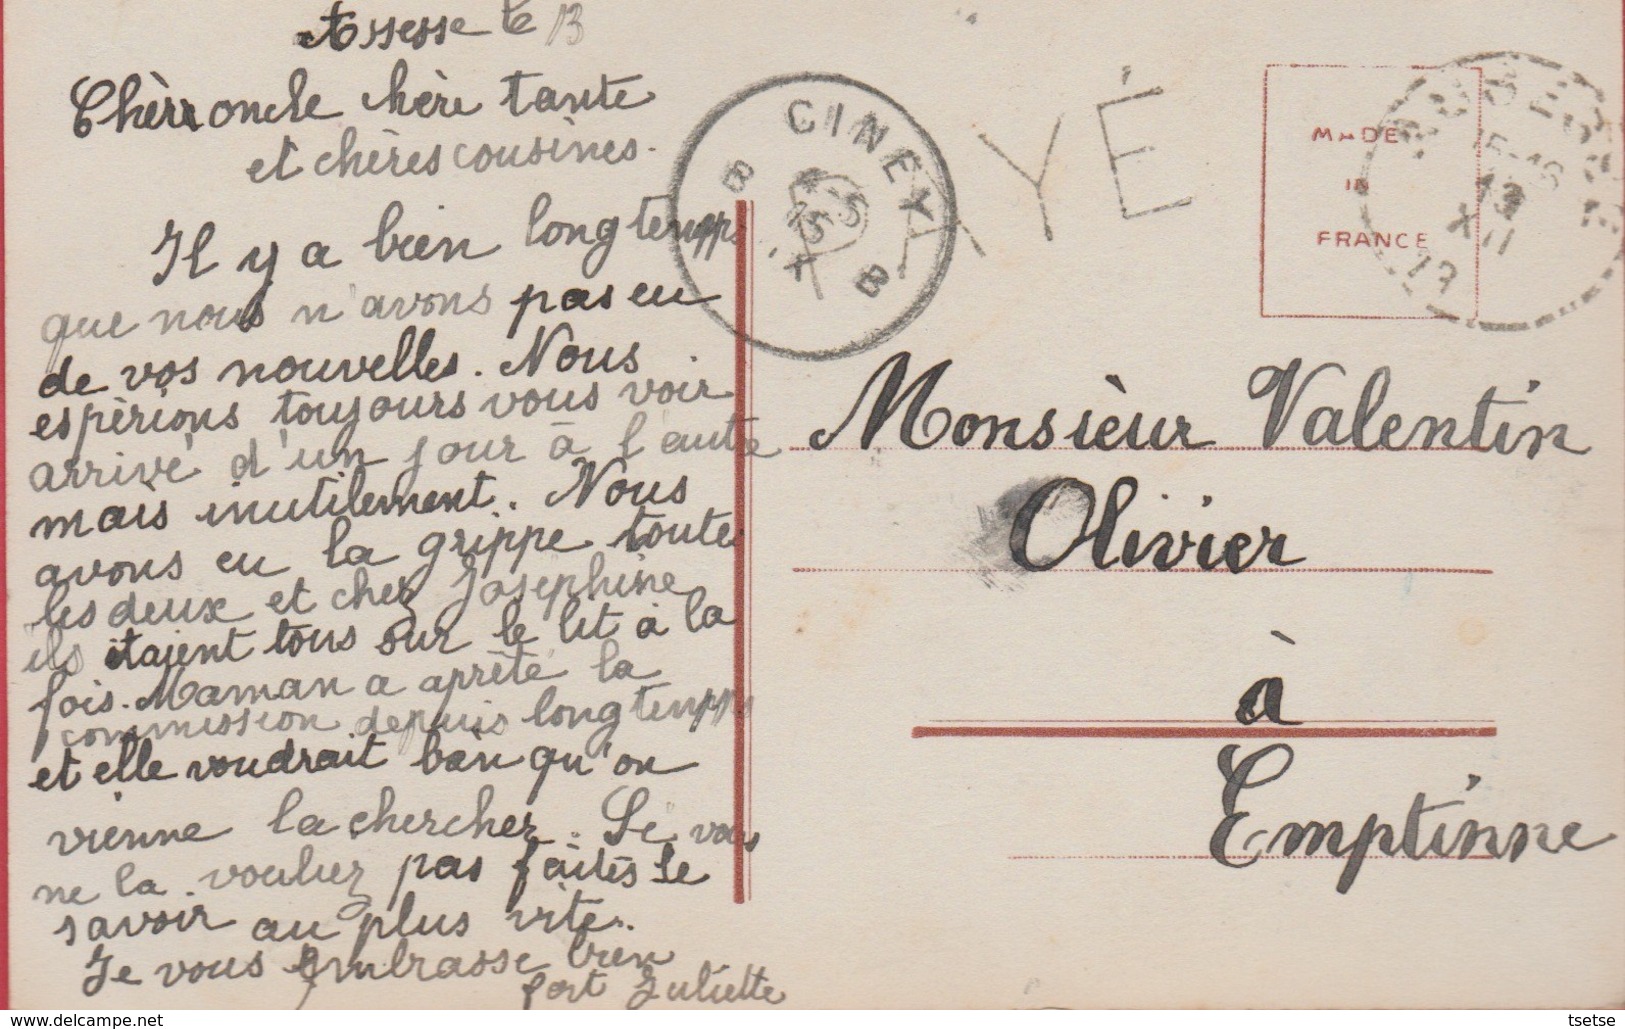 Assesse le 13
Chèrr oncle chère tante
et chères cousines.
Il y a bien longtempps
que nous n'avons pas eu
de vos nouvelles. Nous
espèrions toujours vous voir
arrivé d'un jour à l'autre
mais inutilement. Nous
avons eu la grippe toute
les deux et chez Josephine
ils étaient tous sur le lit à la
fois. Maman a aprèté la
commission depuis longtempps
et elle voudrait bien qu'on
vienne la chercher. Si vous
ne la voulier pas faites le
savoir au plus vite.
Je vous embrasse bien
fort Juliette
CINEY
B B
4-5
15
X
YÉ
MADE
IN
FRANCE
15-16
13
XII
Monsièur Valentin
Olivier
à
Emptinne
tsetse